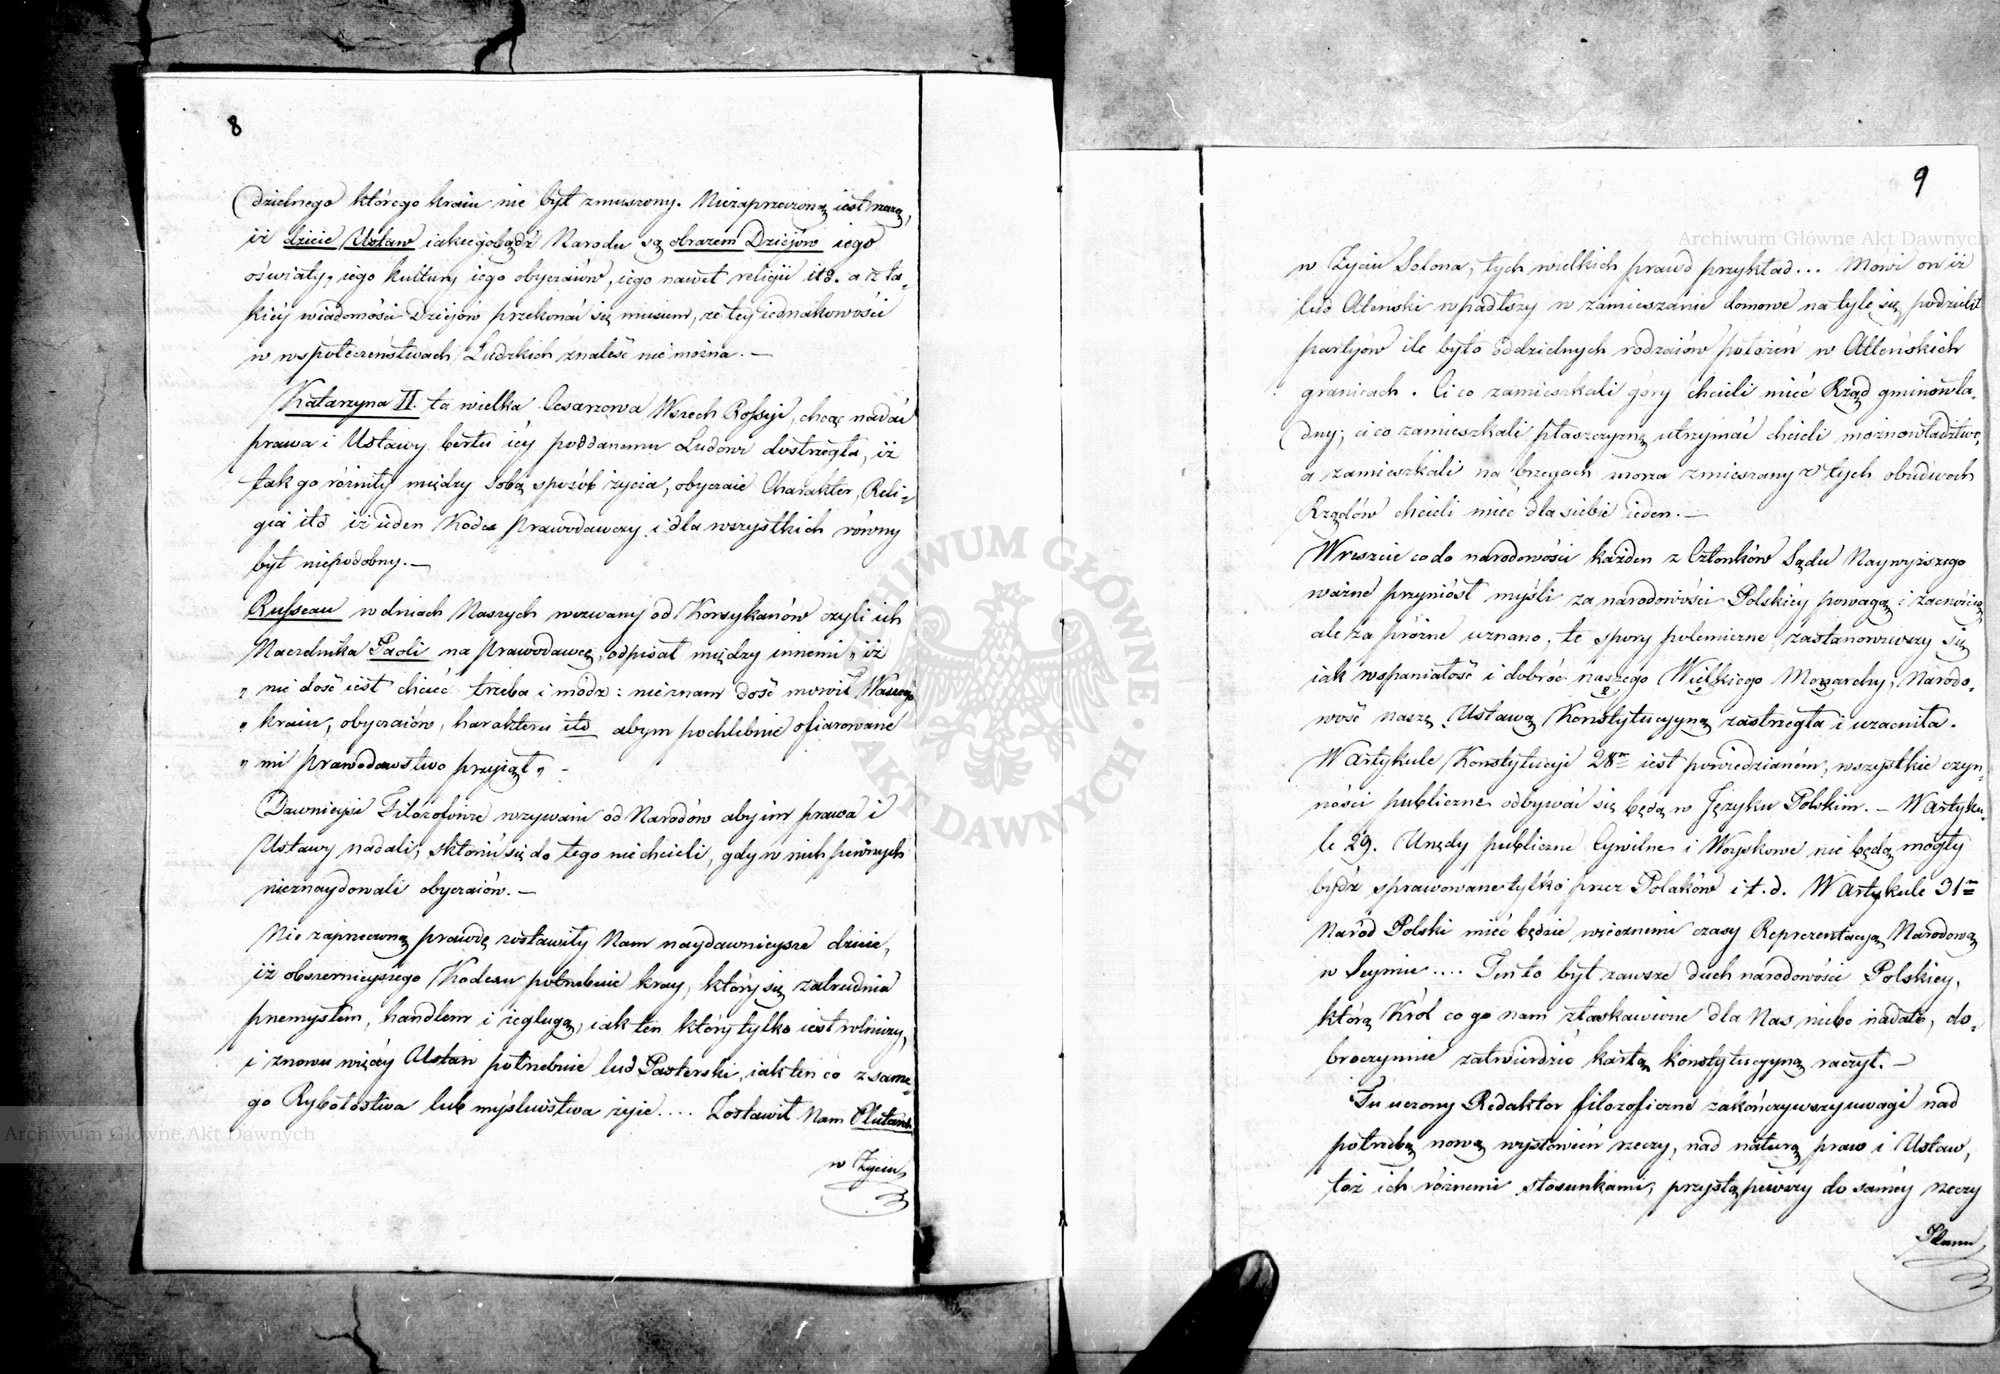 8
dzielnego którego kraiu nie był zmuszony. Niezaprzeczoną iest rzeczą,
iż dzieie Ustaw iakiegobądź Narodu są obrazem Dzieiów iego
oświaty, iego kultury iego obyczaiów, iego nawet religii itd. a z ta-
kiéy wiadomości Dzieiów przekonać się musiem, że tey iednakowości
w wspołeczeństwach Ludzkich znaleść nie można. —
Katarzyna II. ta wielka Cesarzowa Wszech Rossyi, chcąc nadać
prawa i Ustawy berłu iéy poddanemu Ludowi dostrzegła, iż
tak go różniły między sobą sposób życia, obyczaie Charakter, Reli-
gia itd iż ieden Kodex Prawodawczy i dla wszystkich równy
był niepodobny. —
Russeau w dniach Naszych wezwany od Korsykanów czyli ich
Naczelnika Paoli na Prawodawcę, odpisał między innemi „ iż
„ nie dość iest chcieć trzeba i módz: nieznam dość mowił Waszego
„ kraiu, obyczaiów, harakteru itd abym pochlebnie ofiarowane
„ mi Prawodawstwo przyiął „ —
Dawnieysi Filózofowie wzywani od Narodów aby im prawa i
Ustawy nadali, skłonić się do tego niechcieli, gdy w nich pewnych
nieznaydowali obyczaiów. —
Nie zaprzeczoną prawdę zostawiły Nam naydawnieysze dzieie,
iż obszernieyszego Kodexu potrzebuie kray, który się zatrudnia
przemysłem, handlem i żeglugą, iak ten który tylko iest rolniczy,
i znowu więcéy Ustaw potrzebuie lud Pasterski, iak ten co z same-
go Rybołostwa lub myśliwstwa żyie.... Zostawił Nam Plutarch
w Życiu
9
w Życiu Solona, tych wielkich prawd przykład... Mowi on iż
lud Ateński wpadłszy w zamieszanie domowe na tyle się podzielił
partyów ile było oddzielnych rodzaiów położeń w Atteńskich
granicach. Ci co zamieszkali góry chcieli mieć Rząd gminowła-
dny; ci co zamieszkali płaszczyznę utrzymać chcieli możnowładztwo,
a zamieszkáli na brzegach morza zmieszany z tych obudwoch
Rządów chcieli mieć dla siebie ieden. —
Wreszcie co do narodowości każden z Członków Sądu Naywyższego
ważne przyniósł myśli za narodowości Polskiéy powagą i zacnością
ale za próżne uznano, te spory polemiczne, zastanowiwszy się
iak wspaniałość i dobroć naszego Wielkiego Monarchy, Narodo-
wość naszę Ustawą Konstytucyyną zastrzegła i uzacniła.
W Artykule Konstytucyi 28m iest powiedzianém, wszystkie czyn-
ności publiczne odbywać się będą w Języku Polskim. — W Artyku-
le 29. Urzędy publiczne Cywilne i Woyskowe nie będą mogły
bydź sprawowane tylko przez Polaków i t. d. W Artykule 31m
Naród Polski mieć będzie wiecznemi czasy Reprezentacyą Narodową
w Seymie.... Ten to był zawsze duch narodowości Polskiey,
którą Król co go nam złaskawione dla Nas niebo nadało, do-
broczynnie zatwierdzić kartą konstytucyyną raczył. —
Tu uczony Redaktor filozoficzne zakończywszy uwagi nad
potrzebą nową wysłowień rzeczy, nad naturą praw i Ustaw,
toż ich różnemi stosunkami, przystąpiwszy do saméy rzeczy
Planu